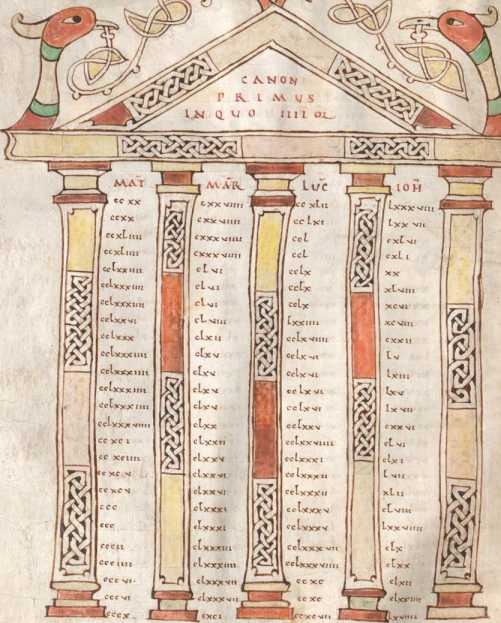 CANON
PRIMUS
IN QUO IIII OL
MAT̄ MAR̄ LUC̄ IOH̄
ccxx cxxviiii ccxlii lxxxviiii
ccxx cxxviiii cclxi lxxvii
ccxliiii cxxxviiii ccl cxlvi
ccxliiii cxxxviiii ccl cxli
cclxxiiii clvi cclx xx
cclxxiiii clvi cclx xlviii
cclxxiiii clvi lxxiiii xcvi
cclxxvi clviiii cclxvi xcviii
cclxxx clxii cclxviiii cxxii
cclxxxiiii clxv cclxvi lv
cclxxxiiii clxv cclxvi lxiii
cclxxxiiii clxv cclxvi lxv
cclxxxiiii clxv cclxvi lxvii
cclxxxviiii clxx cclxxv cxxvi
ccxci clxxii cclxxviiii clvi
ccxciiii clxxv cclxxxi clxi
ccxcv clxxvi cclxxxii lvii
ccxcv clxxvi cclxxxii xlii
ccc clxxxi cclxxxv clviii
ccc clxxxi cclxxxv lxxviiii
cccii clxxxiii cclxxxvii clx
ccciiii clxxxiiii cclxxxviiii clxx
cccvi clxxxvii ccxc clxii
cccvi clxxxvii ccxc clxxiiii
cccx cxci ccxcvii lxviiii